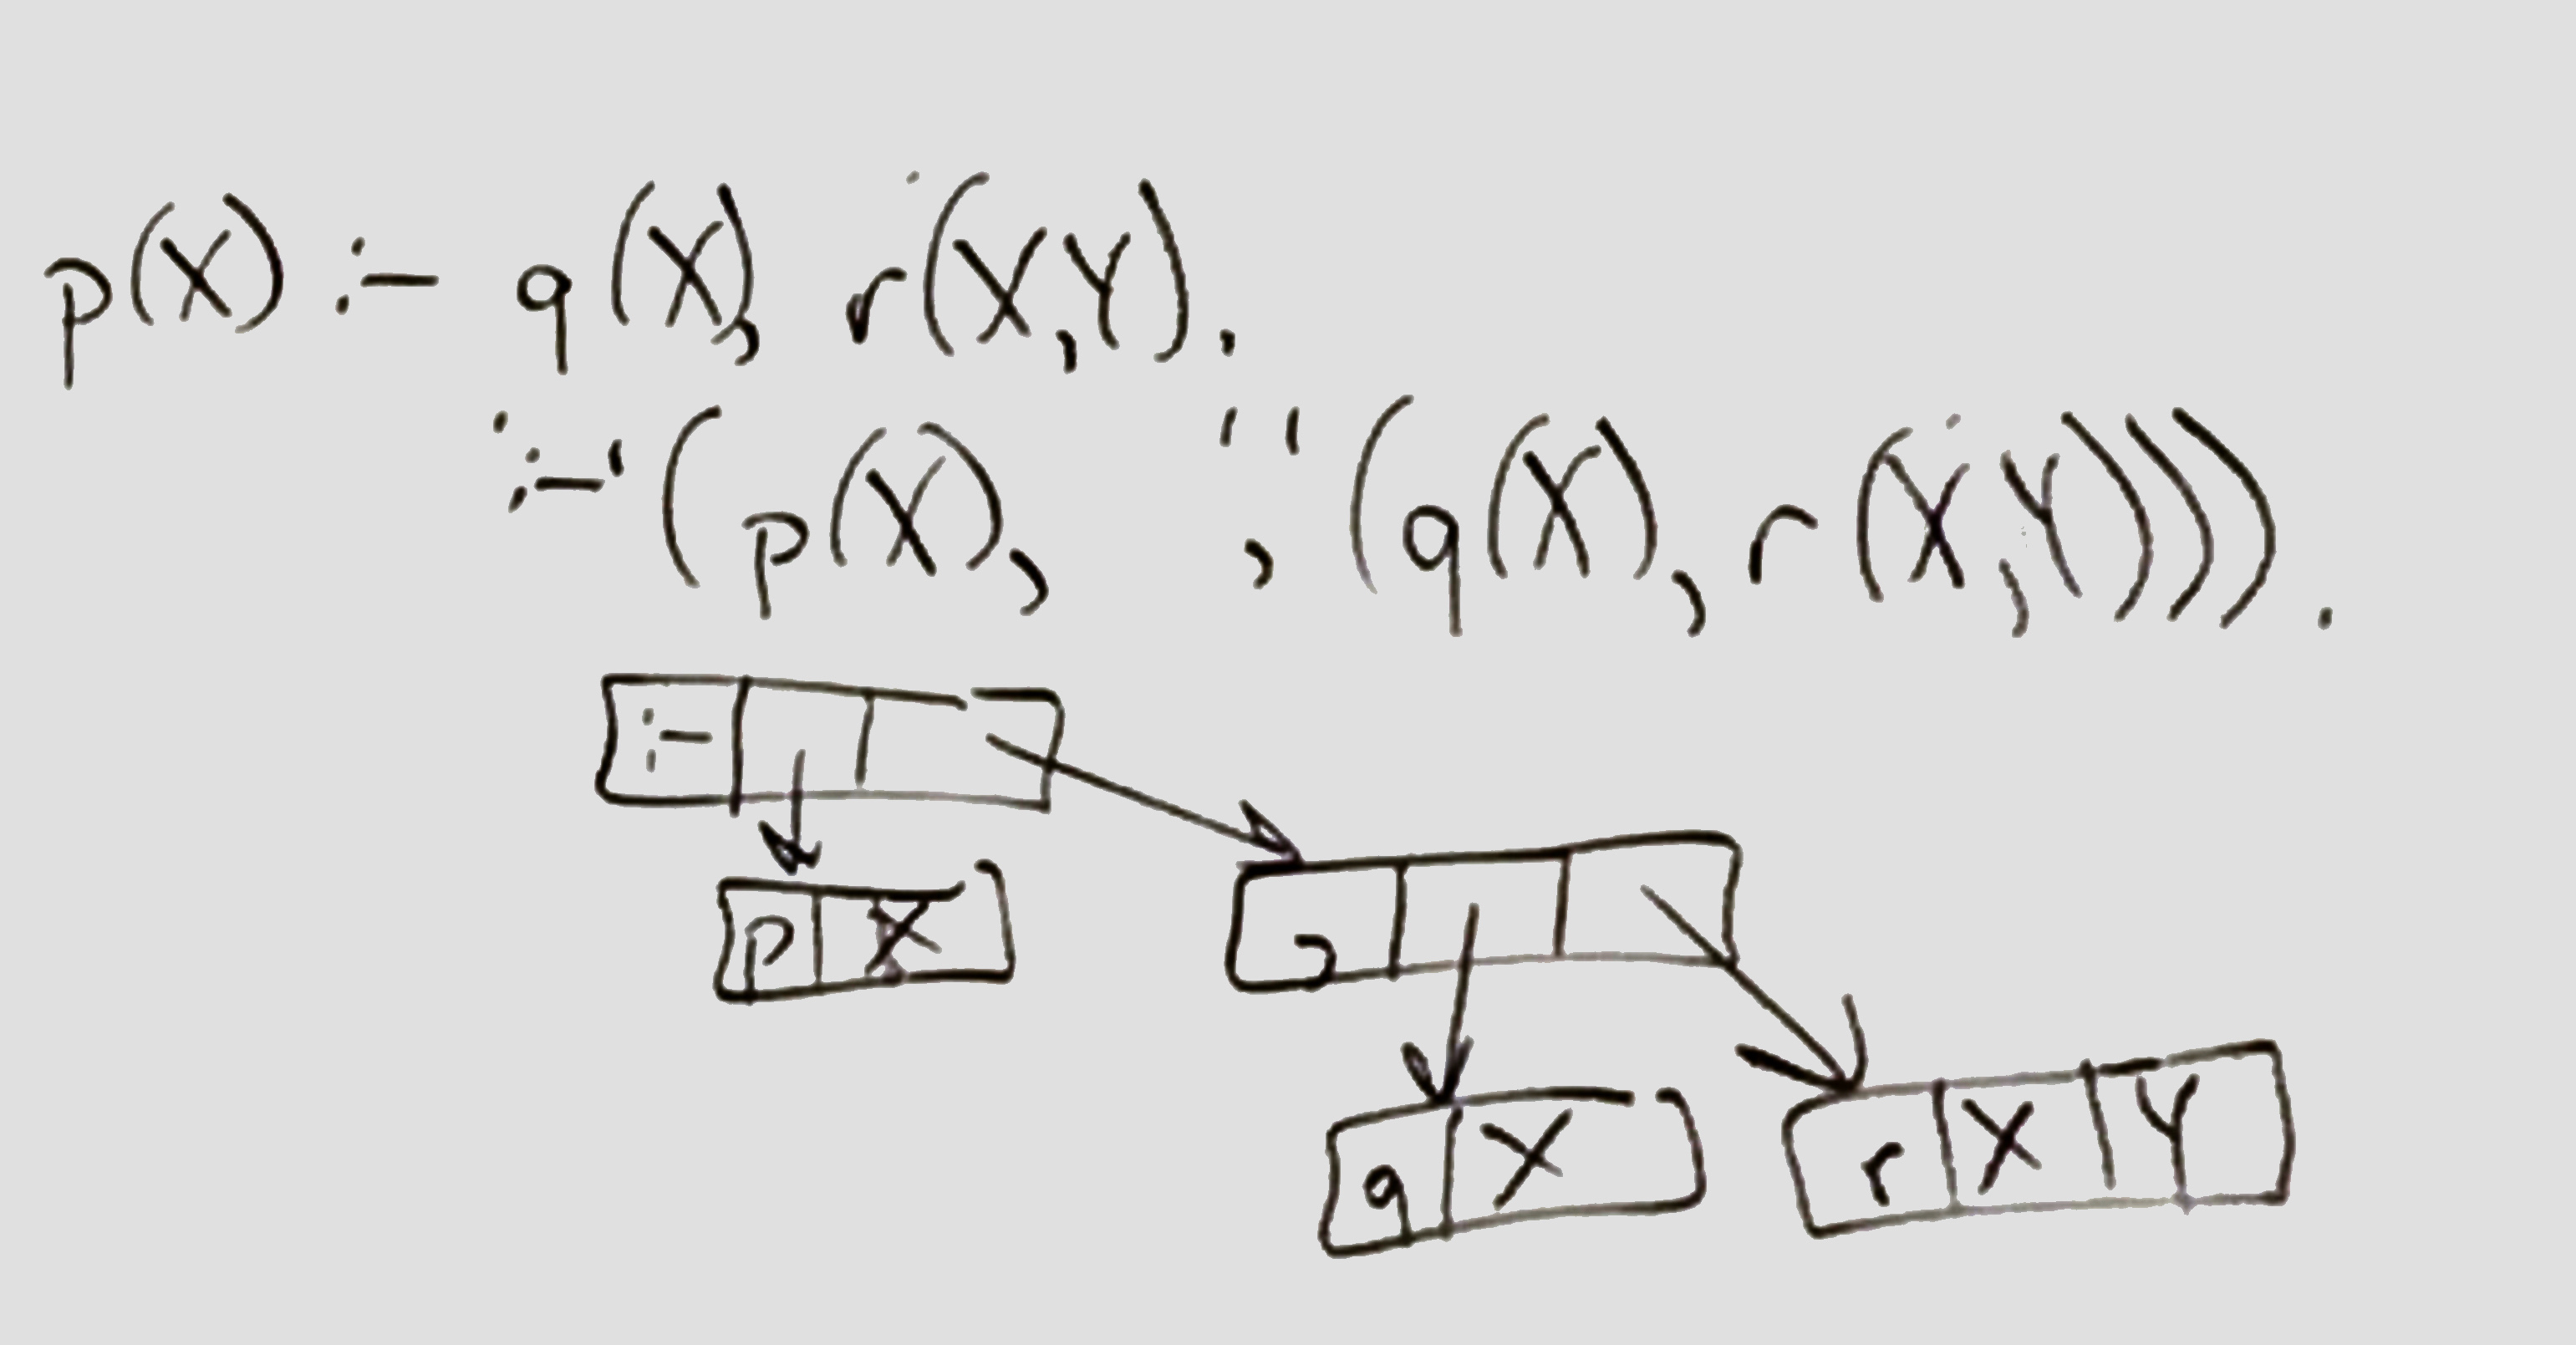 p(X) :- q(X), r(X,Y).
':-'(p(X), ','(q(X), r(X,Y))).
:-
p X
,
q X
r X Y